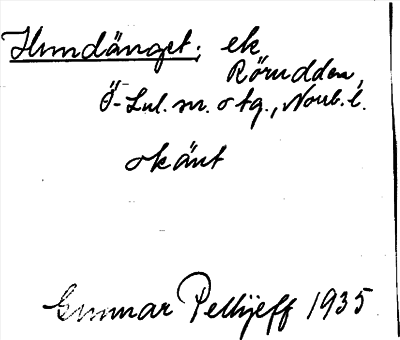 Hundänget; ek
Rörudden,
Ö-Lul. sn. o tg., Norrb. l.
okänt
Gunnar Pellijeff 1935